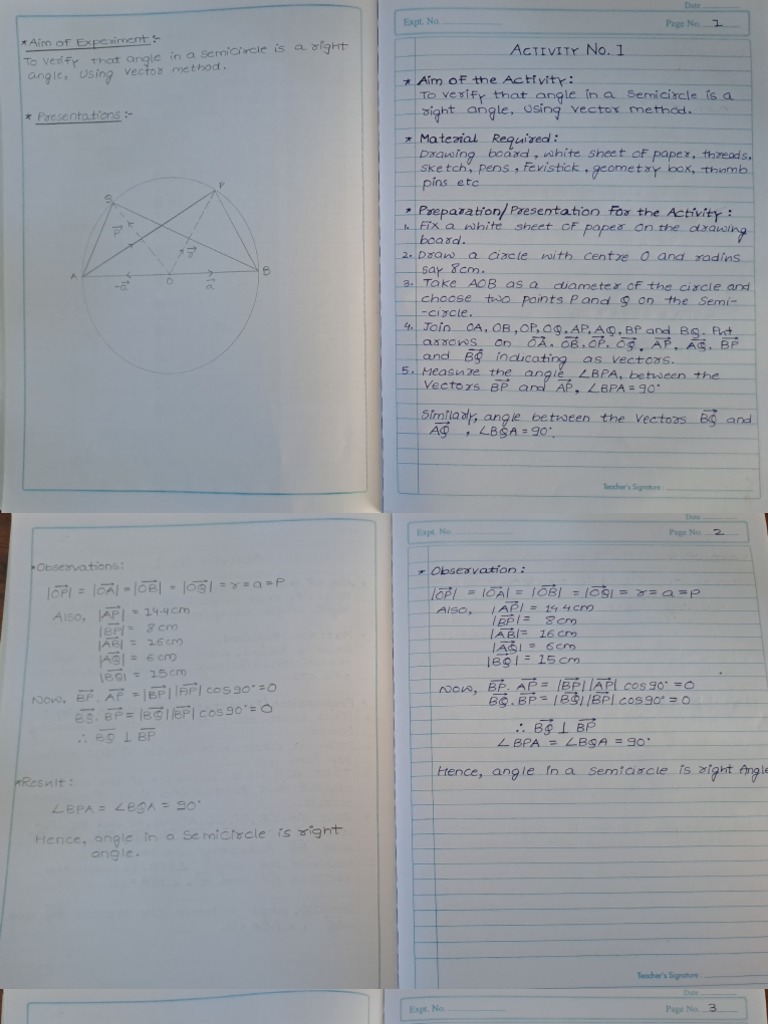 * Aim of Experiment :-
To verify that angle in a semicircle is a right
angle, using vector method.
* Presentations :-
S
P
P⃗
a⃗
A
-a⃗
O
a⃗
B
Date
Expt. No.
Page No. 1
ACTIVITY NO. 1
* Aim of the Activity :
To verify that angle in a semicircle is a
right angle, using vector method.
* Material Required :
Drawing board, white sheet of paper, threads,
sketch, pens, Fevistick, geometry box, thumb
pins etc
* Preparation/Presentation for the Activity :
1. Fix a white sheet of paper on the drawing
board.
2. Draw a circle with centre O and radius
say 8cm.
3. Take AOB as a diameter of the circle and
choose two points P and Q on the semi-
-circle.
4. Join OA, OB, OP, OQ, AP, AQ, BP and BQ. Put
arrows on OA⃗, OB⃗, OP⃗, OQ⃗, AP⃗, AQ⃗, BP⃗
and BQ⃗ indicating as vectors.
5. Measure the angle ∠BPA, between the
vectors BP⃗ and AP⃗, ∠BPA = 90°
Similarly, angle between the vectors BQ⃗ and
AQ⃗, ∠BQA = 90°.
Teacher's Signature :
* Observations:
|OP⃗| = |OA⃗| = |OB⃗| = |OQ⃗| = r = a = P
Also, |AP⃗| = 14.4cm
|BP⃗| = 8cm
|AB⃗| = 16cm
|AQ⃗| = 6cm
|BQ⃗| = 15cm
Now, BP⃗. AP⃗ = |BP⃗| |AP⃗| cos90° = 0
BQ⃗. BP⃗ = |BQ⃗| |BP⃗| cos90° = 0
∴ BQ⃗ ⊥ BP⃗
* Result:
∠BPA = ∠BQA = 90°
Hence, angle in a semicircle is right
angle.
Date
Expt. No.
Page No. 2
* Observation :
|OP⃗| = |OA⃗| = |OB⃗| = |OQ⃗| = r = a = p
Also, |AP⃗| = 14.4cm
|BP⃗| = 8cm
|AB⃗| = 16cm
|AQ⃗| = 6cm
|BQ⃗| = 15cm
Now, BP⃗. AP⃗ = |BP⃗| |AP⃗| cos90° = 0
BQ⃗. BP⃗ = |BQ⃗| |BP⃗| cos90° = 0
∴ BQ⃗ ⊥ BP⃗
∠BPA = ∠BQA = 90°
Hence, angle in a semicircle is right Angle
Teacher's Signature :
Date
Expt. No.
Page No. 3